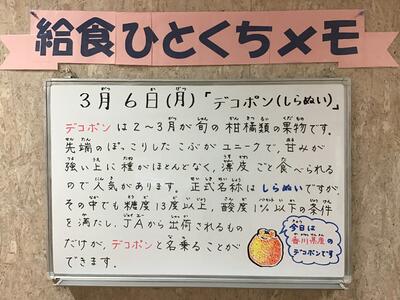 給食ひとくちメモ
3月6日(月)「デコポン(しらぬい)」
デコポンは2～3月が旬の柑橘類の果物です。
先端のぽっこりしたこぶがユニークで、甘みが
強い上に種がほとんどなく、薄皮ごと食べられる
ので人気があります。正式名称はしらぬいですが、
その中でも糖度13度以上、酸度1%以下の条件
を満たし、JAから出荷されるもの
だけが、デコポンと名乗ることが
できます。
今日は
香川県産の
デコポンです